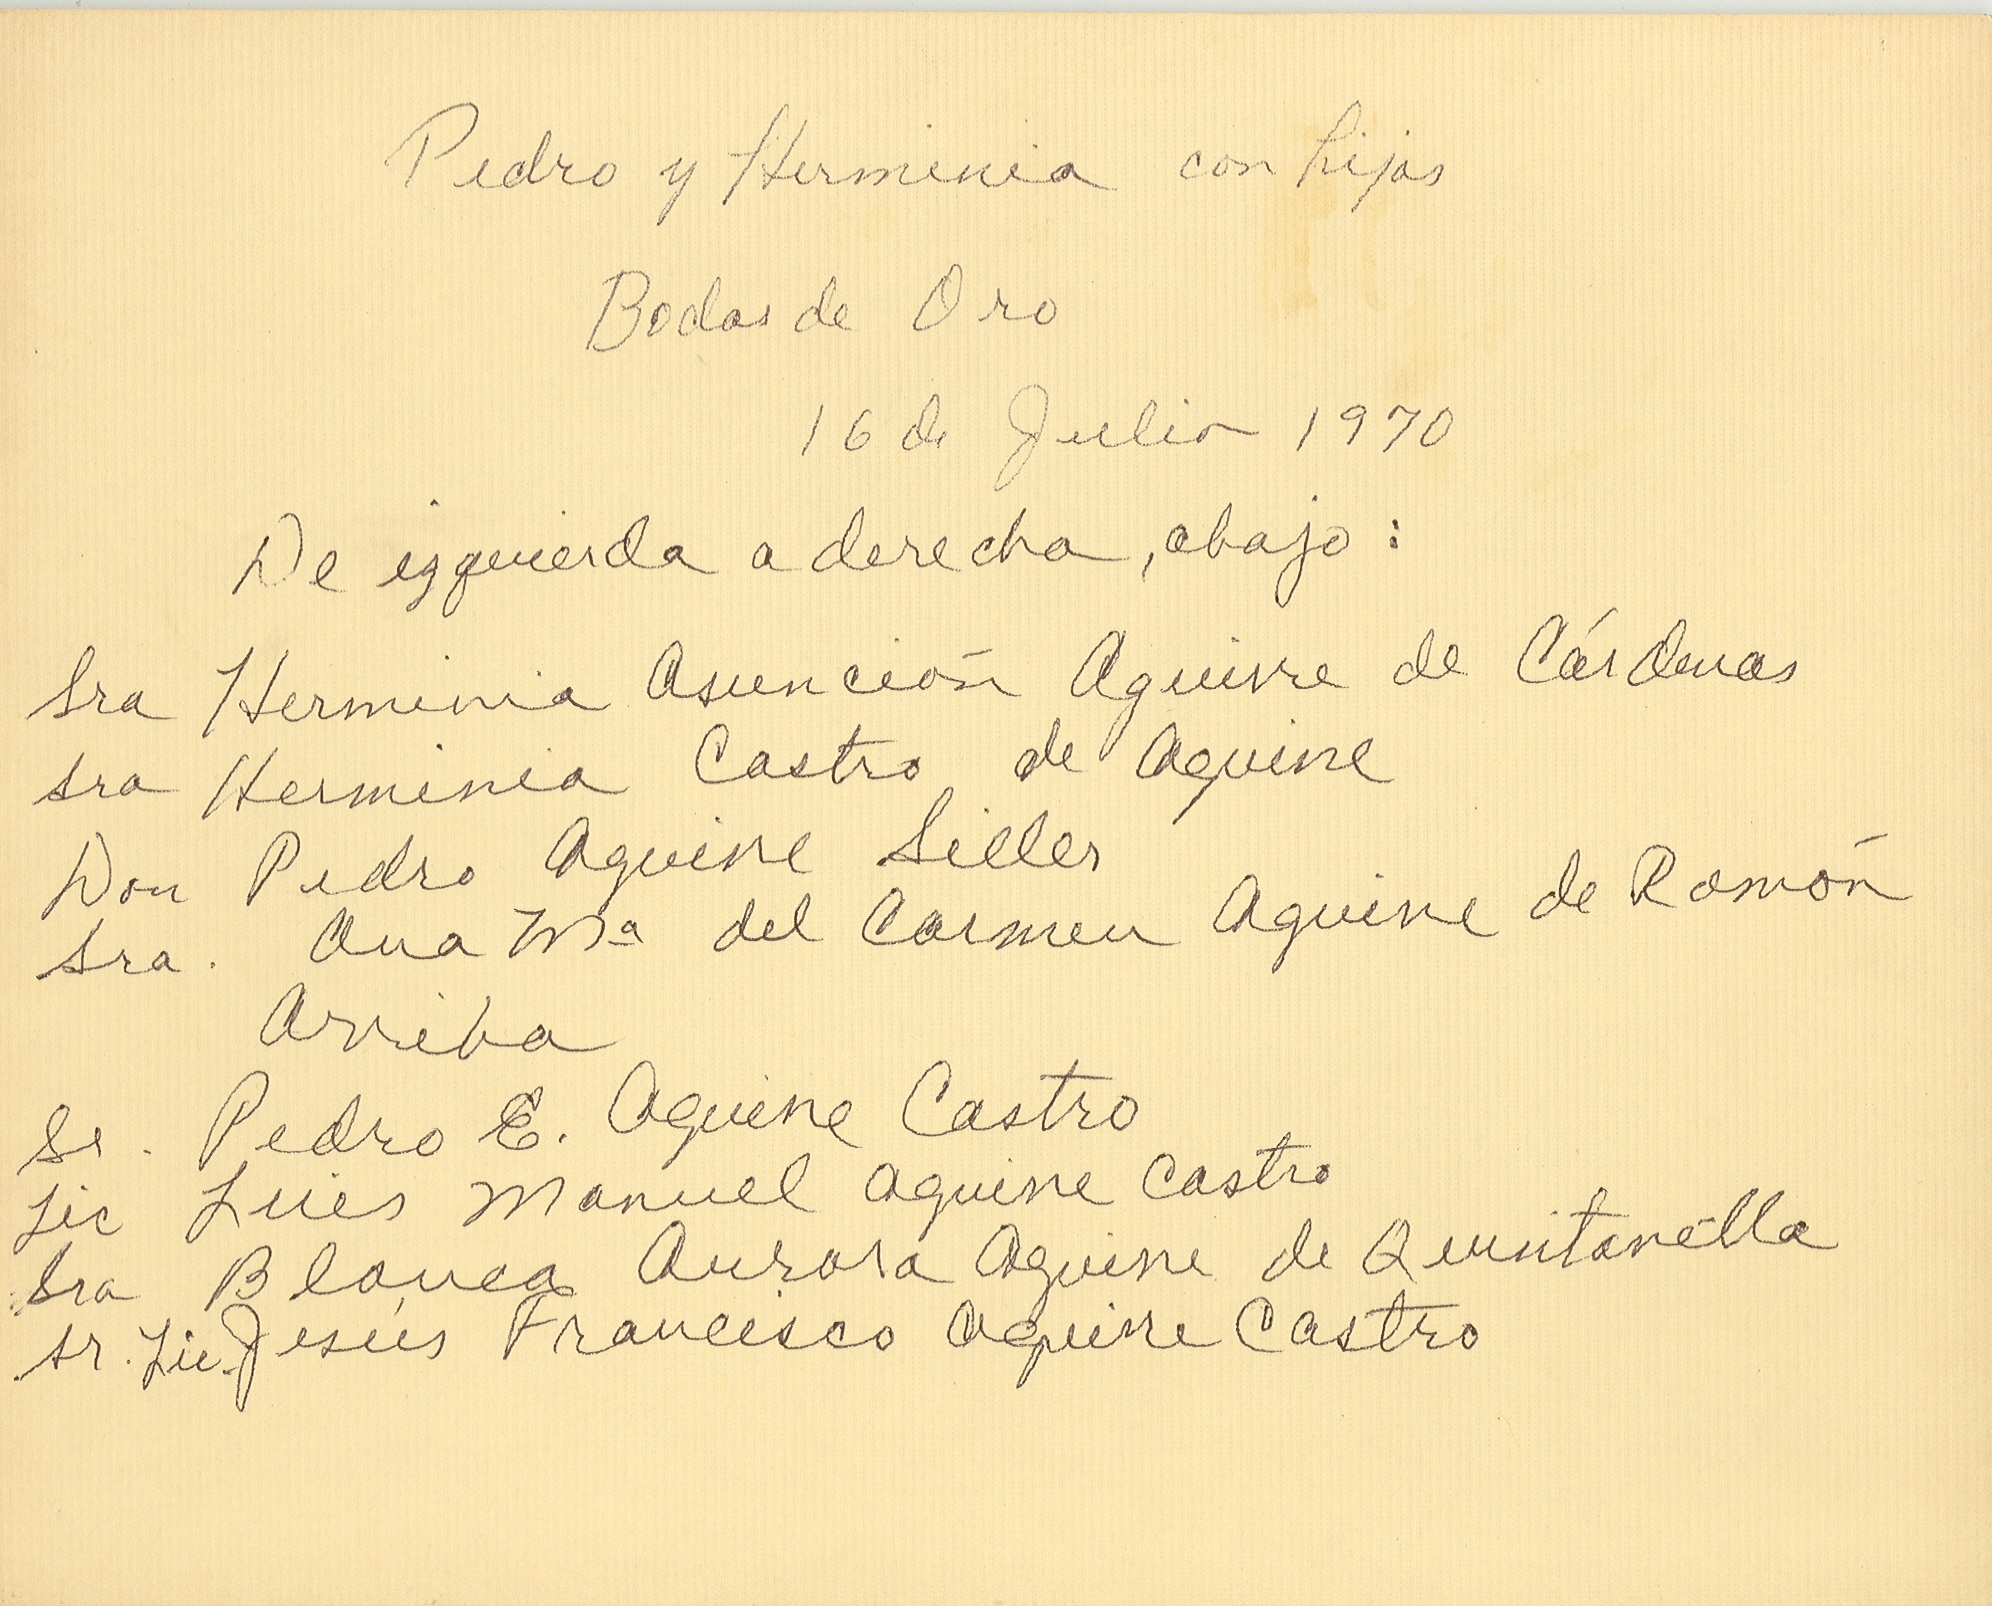 Pedro y Herminia con hijos
Bodas de Oro
16 de Julio 1970
De izquierda a derecha, abajo:
Sra Herminia Asunción Aguirre de Cárdenas
Sra Herminia Castro de Aguirre
Don Pedro Aguirre Siller
Sra. Ana Mª del Carmen Aguirre de Ramón
Arriba
Sr. Pedro E. Aguirre Castro
Lic Luis Manuel Aguirre Castro
Sra Blanca Aurora Aguirre de Quintanilla
Sr. Lic. Jesús Francisco Aguirre Castro